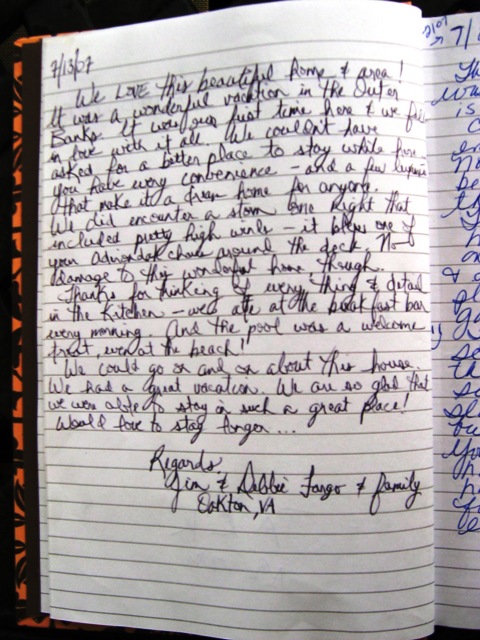 7/13/07
We LOVE this beautiful home & area!
It was a wonderful vacation in the Outer
Banks. It was our first time here & we fell
in love with it all. We couldn't have
asked for a better place to stay while here -
you have every convenience - and a few luxuries
that make it a dream home for anyone.
We did encounter a storm one night that
included pretty high winds - it blew one of
your Adirondak chairs around the deck. No
damage to this wonderful home though.
Thanks for thinking of every thing & detail
in the kitchen - we ate at the breakfast bar
every morning. And the pool was a welcome
treat, even at the beach!
We could go on and on about this house.
We had a great vacation. We are so glad that
we were able to stay in such a great place!
Would love to stay longer...
Regards,
Jim & Debbie Fargo & family
Oakton, VA
7/